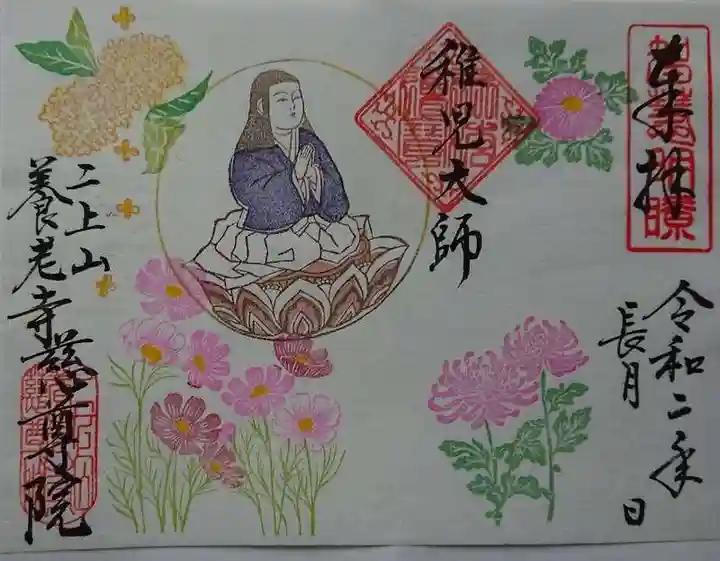 奉拝
智慧明瞭
令和二年
長月 日
稚児大師
二上山
養老寺慈尊院